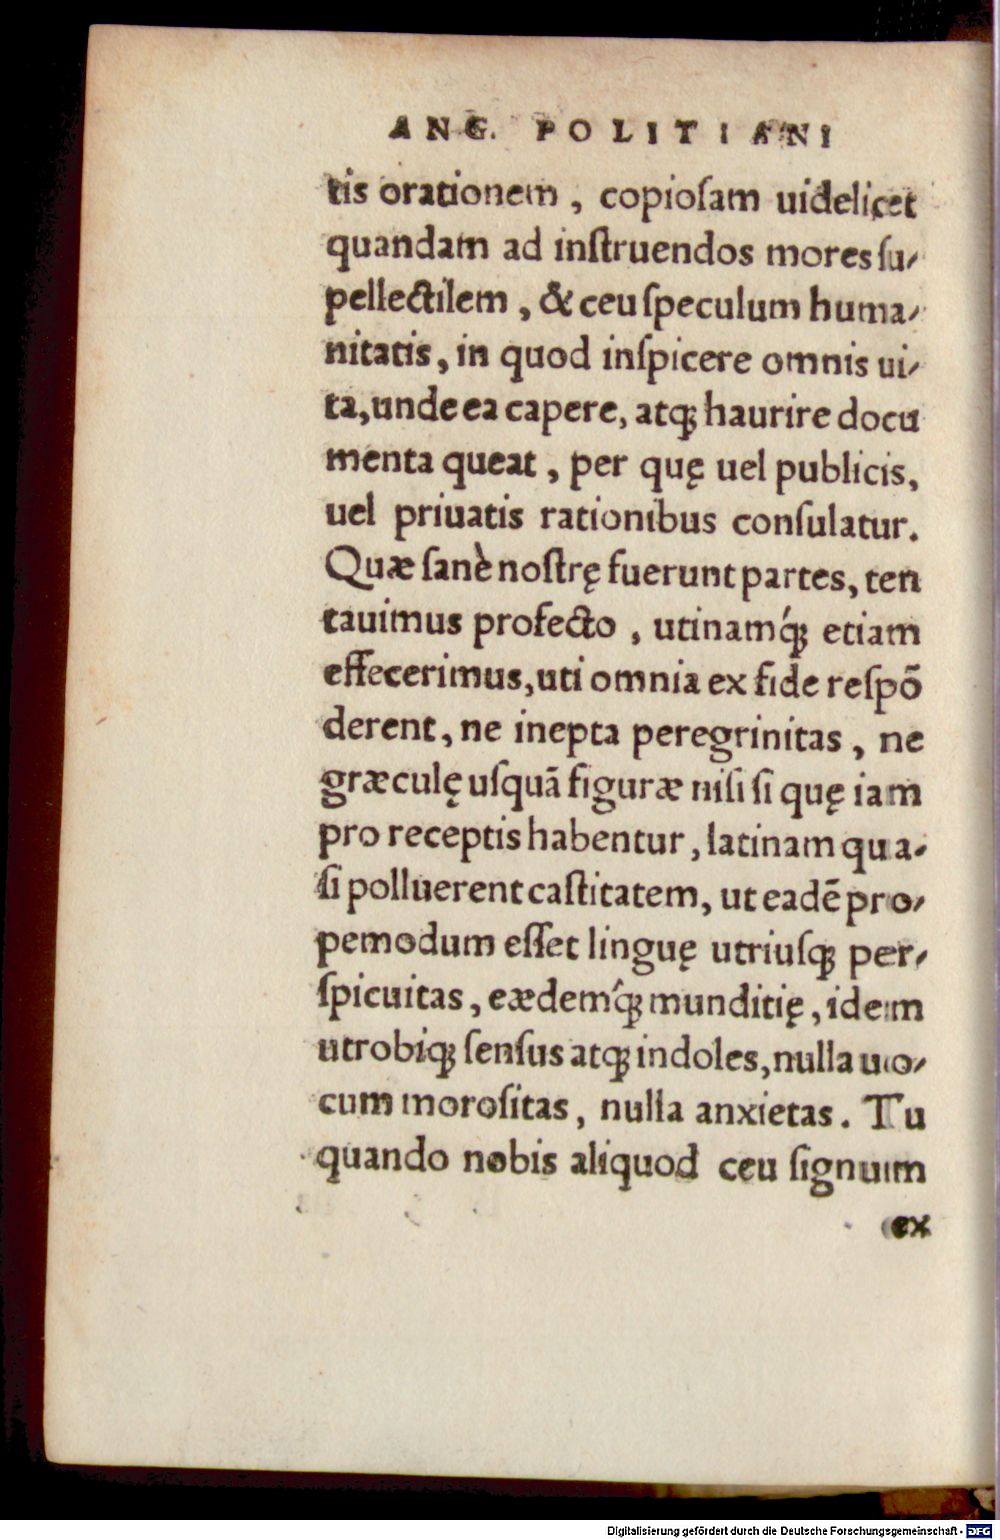 ANG. POLITIANI
tis orationem, copioſam uidelicet
quandam ad inſtruendos mores ſu⸗
pellectilem, & ceu ſpeculum huma⸗
nitatis, in quod inſpicere omnis ui⸗
ta, unde ea capere, atqꝫ haurire docu
menta queat, per quę uel publicis,
uel priuatis rationibus conſulatur.
Quæ ſanè noſtrę fuerunt partes, ten
tauimus profecto, utinamq́ꝫ etiam
effecerimus, uti omnia ex fide reſpō
derent, ne inepta peregrinitas, ne
græculę uſquā figuræ niſi ſi quę iam
pro receptis habentur, latinam qua⸗
ſi polluerent caſtitatem, ut eadē pro⸗
pemodum eſſet linguę utriuſqꝫ per⸗
ſpicuitas, eædemq́ꝫ munditię, idem
utrobiqꝫ ſenſus atqꝫ indoles, nulla uo⸗
cum moroſitas, nulla anxietas. Tu
quando nobis aliquod ceu ſignum
ex
Digitalisierung gefördert durch die Deutsche Forschungsgemeinschaft - DFG